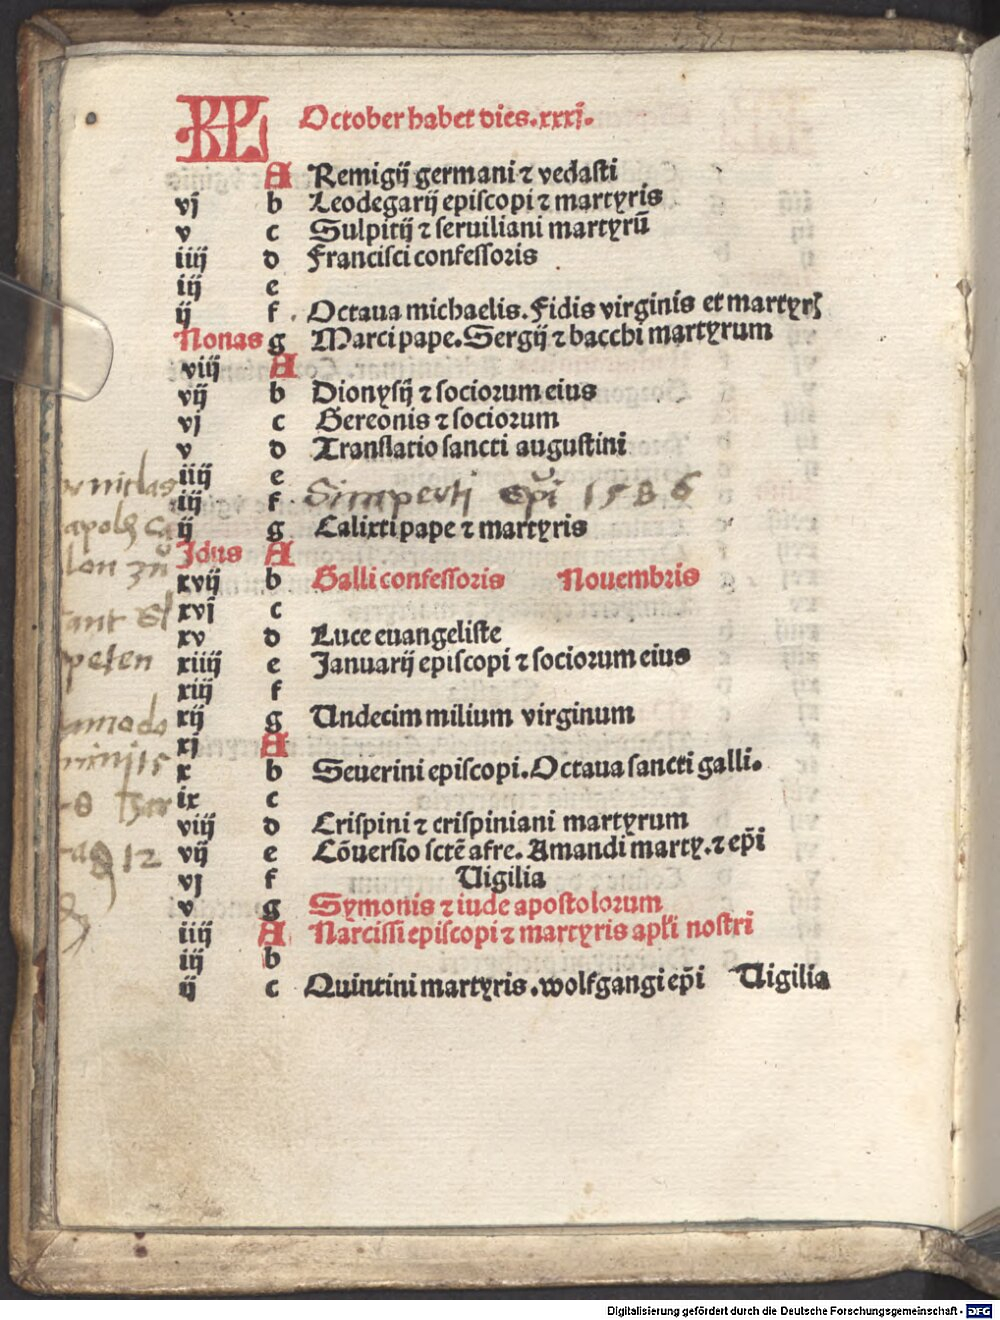 KL October habet dies.xxxj.
A Remigij germani ⁊ vedasti
vj b Leodegarij episcopi ⁊ martyris
v c Sulpitij ⁊ seruiliani martyrū
iiij d Francisci confessoris
iij e
ij f Octaua michaelis. Fidis virginis et martyrꝭ
Nonas g Marci pape. Sergij ⁊ bacchi martyrum
viij A
vij b Dionysij ⁊ sociorum eius
vj c Gereonis ⁊ sociorum
v d Translatio sancti augustini
iiij e
iij f Simperti ep̄i 1586
ij g Calixti pape ⁊ martyris
Jdus A
xvij b Galli confessoris Nouembris
xvj c
xv d Luce euangeliste
xiiij e Januarij episcopi ⁊ sociorum eius
xiij f
xij g Undecim milium virginum
xj A
x b Seuerini episcopi. Octaua sancti galli.
ix c
viij d Crispini ⁊ crispiniani martyrum
vij e Cōuersio sctē afre. Amandi marty. ⁊ ep̄i
vj f Uigilia
v g Symonis ⁊ iude apostolorum
iiij A Narcissi episcopi ⁊ martyris apl̄i nostri
iij b
ij c Quintini martyris. wolfgangi ep̄i Uigilia
Digitalisierung gefördert durch die Deutsche Forschungsgemeinschaft - DFG